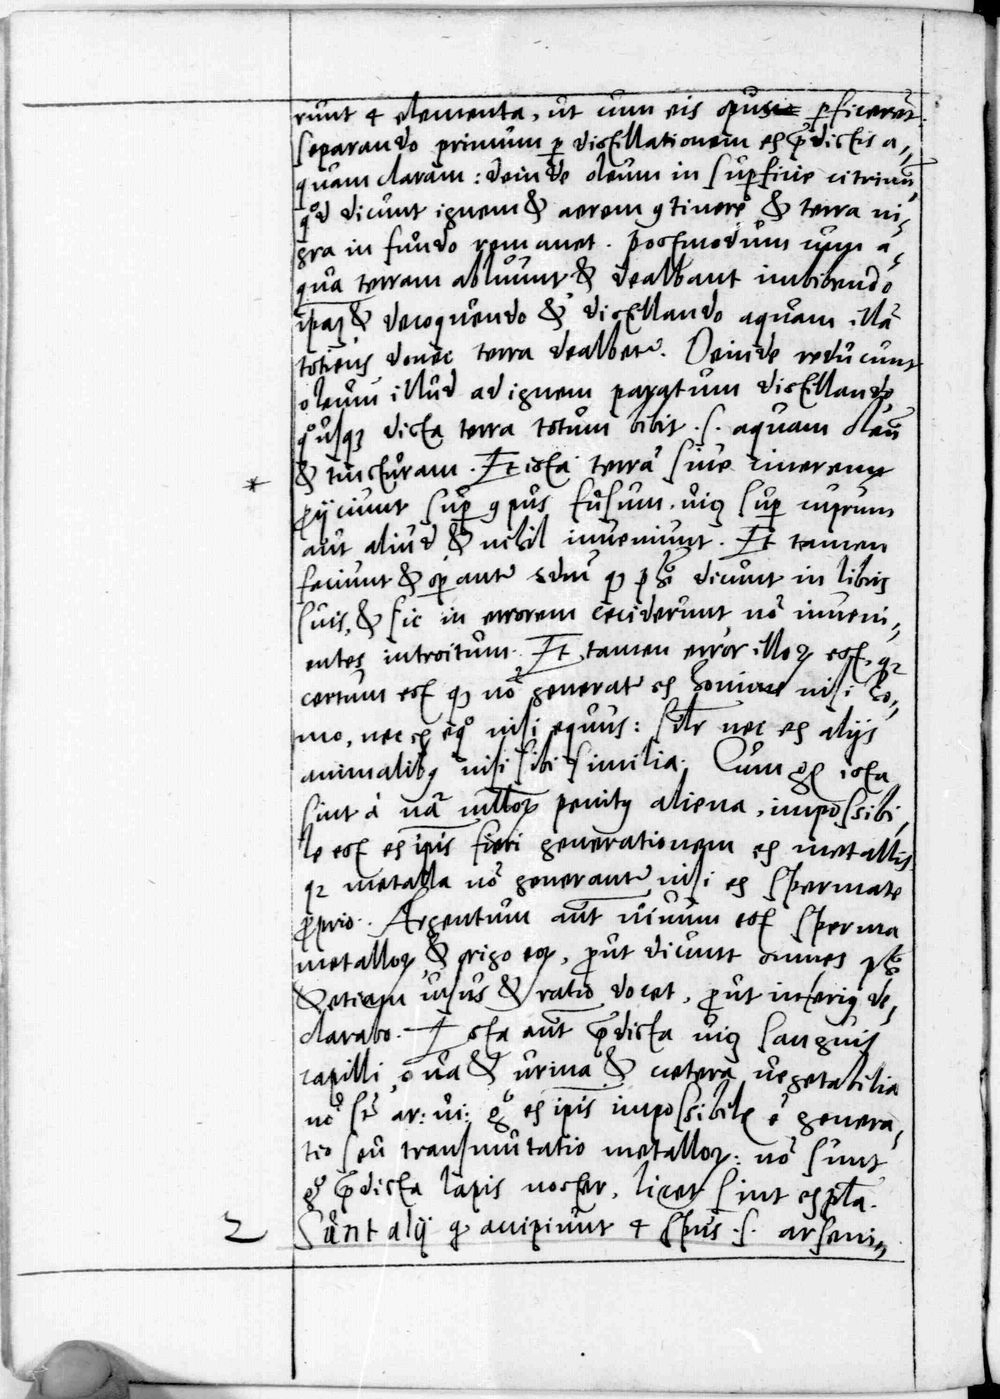 runt 4 elementa, ut cum eis opus p̱ficerēt.
Separando primum p̱ distillationem ex p̄dictis a„
quam claram: deinde oleum in sup̱ficie citrinū,
qd̊ dicunt ignem & aerem ꝯtinere & terra ni„
gra in fundo remanet. Postmodum cum a„
qua terram abluunt & dealbant imbibendo
ip̄aꝫ & decoquendo & distillando aquam illā
totiens donec terra dealbetr̃. Deinde reducunt
oleum illud ad ignem paratum distillando
qůsqꝫ dicta terra totum bibit .s. aquam oleū
& tincturam. Et ista terrā sive cinerem
* ꝓijciunt sup̱ corpus fusum. uiꝫ sup̱ cuprum
aut aliud & nihil inveniunt. Et tamen
faciunt & op̱antr̃ sdm̄ qꝫ phī dicunt in libris
suis, & sic in errorem ceciderunt nō inveni„
entes introitum. Et tamen error illoꝝ est, qꝛ
certum est qꝫ nō generatr̃ ex homine nisi ho„
mo, nec ex equo nisi equus: Siłr nec ex alijs
animalibꝰ nisi sibi similia. Cum gͦ ista
sint à nā metalloꝝ penitꝰ aliena, impossibi„
le est ex ip̄is fieri generationem ex metallis
qꝛ metalla nō generantr̃ nisi ex spermate
ꝓprio. Argentum aūt vivum est sperma
metalloꝝ & origo eoꝝ, ꝓut dicunt omnes phī
& etiam usus & ratio docet, ꝓut inferiꝰ de„
clarabo. Ista aūt p̄dicta uiꝫ sanguis
capilli, ova & urina & cetera vegetabilia
nō sūt ar: vi: gͦ ex ip̄is impossibile ē genera„
tio seu transmutatio metalloꝝ: nō sunt
gͦ p̄dicta lapis noster, licet sint ex pła.
2 Sunt alij q̇ accipiunt 4 sp̄us .s. arseni„